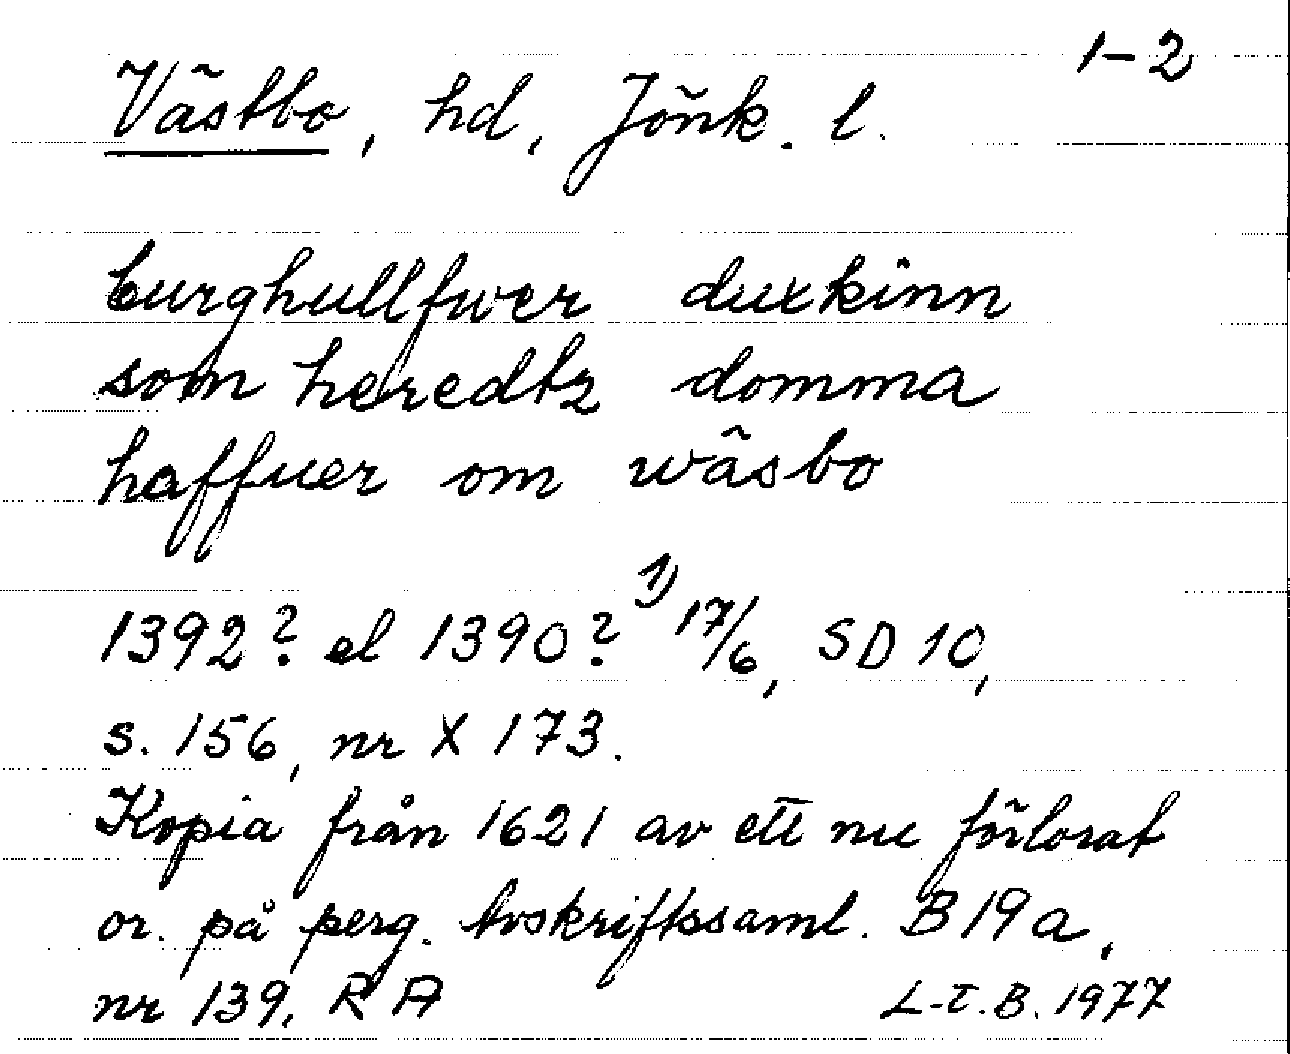 1-2
Västbo, hd, Jönk. l.
burghullfwer duxkinn
som heredtz domma
haffuer om wäsbo
1392? el 1390? 1) 17/6, SD 10,
s. 156, nr X 173.
Kopia från 1621 av ett nu förlorat
or. på perg. Avskriftssaml. B 19 a,
nr 139, RA L-E.B. 1977